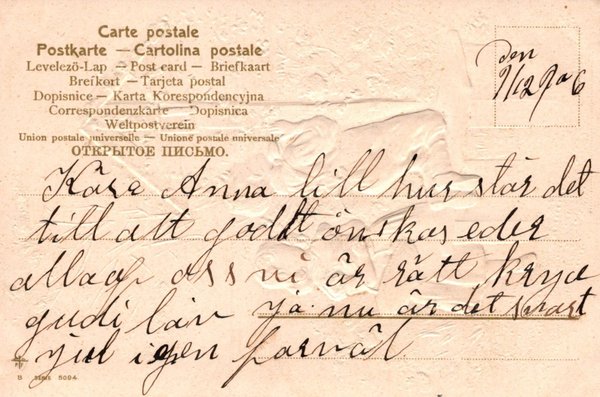 Carte postale
Postkarte — Cartolina postale
Levelező-Lap — Post card — Briefkaart
Brefkort — Tarjeta postal
Dopisnice — Karta Korespondencyjna
Correspondenzkarte — Dopisnica
Weltpostverein
Union postale universelle — Unione postale universale
ОТКРЫТОЕ ПИСЬМО.
den
9/12 906
Kära Anna lill hur står det
till att godt önskas eder
allap oss vi är rätt krya
gudi låv ja nu är det snart
jul igen farväl
B SERIE 5094